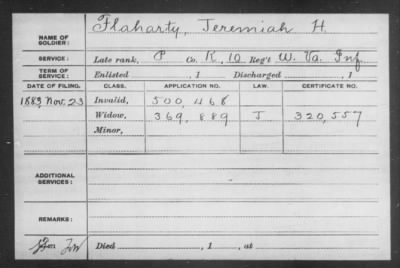 NAME OF SOLDIER: Flaharty, Jeremiah H.
SERVICE: Late rank, P Co. K, 10 Reg't W. Va. Inf.
TERM OF SERVICE: Enlisted , 1 Discharged , 1
DATE OF FILING. CLASS. APPLICATION NO. LAW. CERTIFICATE NO.
1883, Nov. 23 Invalid, 500,468
Widow, 369,889 J 320,557
Minor,
ADDITIONAL SERVICES:
REMARKS:
Died , 1 , at